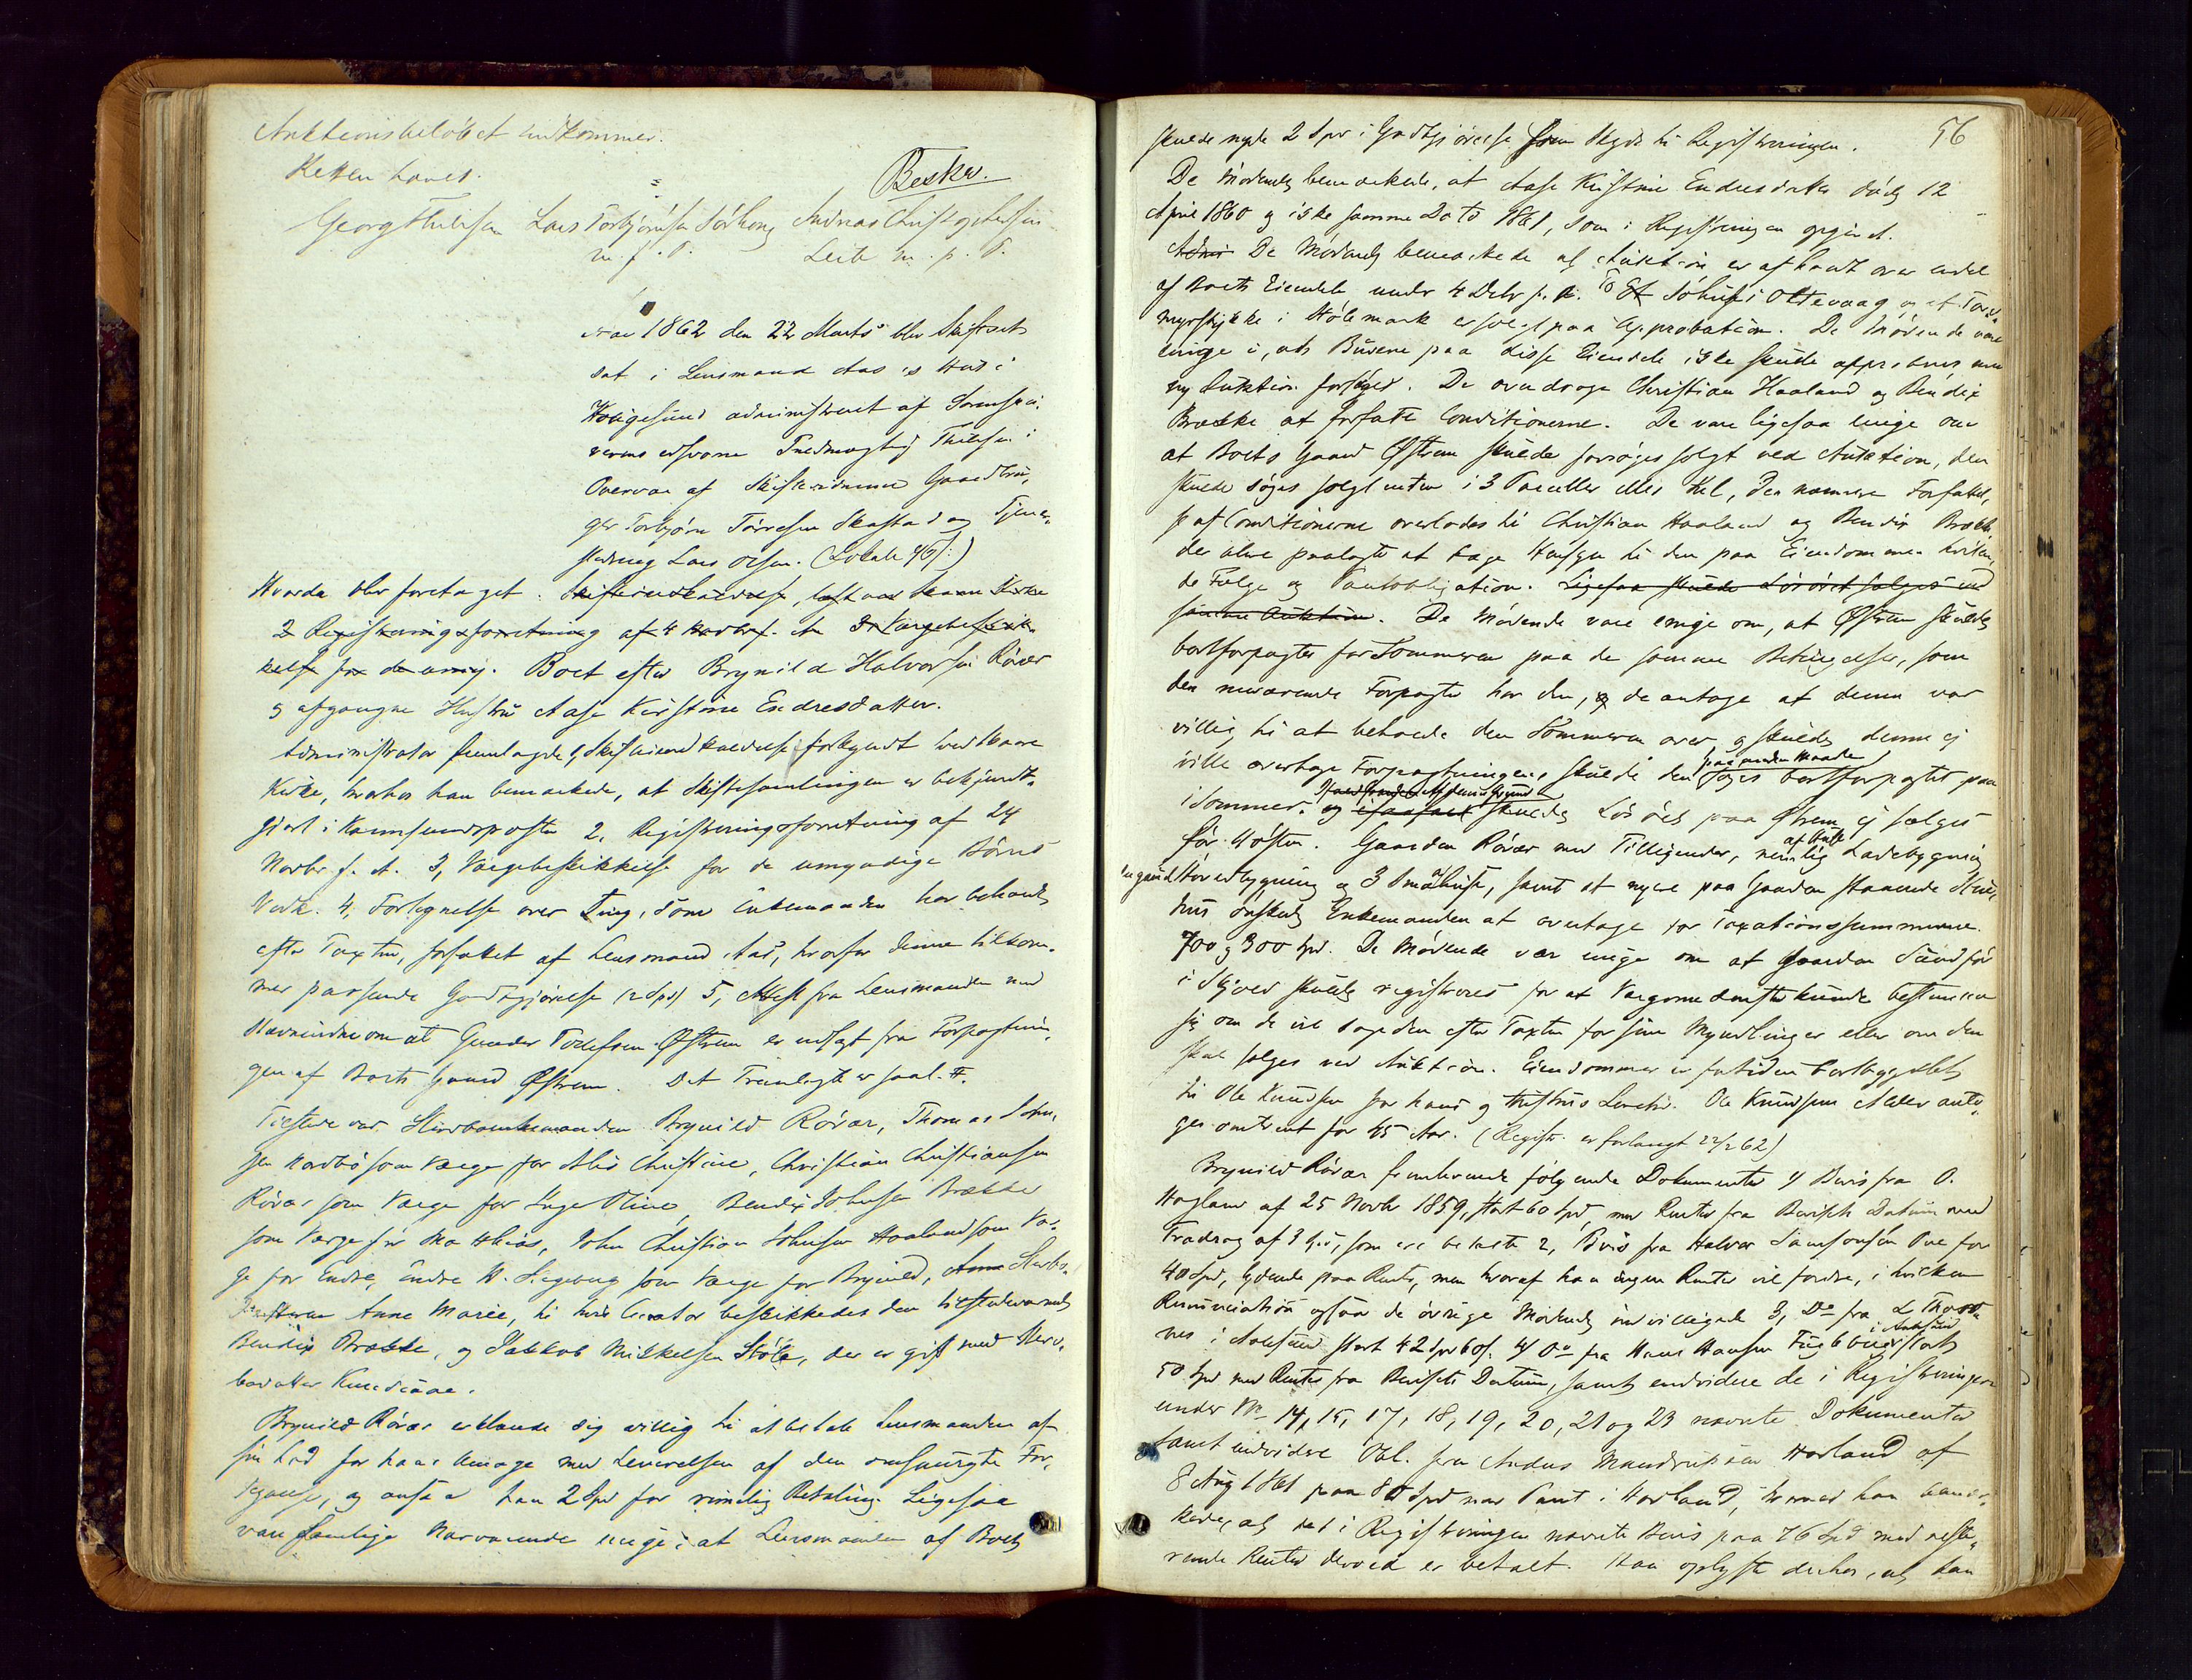 Auktionsbeløbet indkommer.
Retten hævet.
Beskr.
Georg Thilesen Lars Torbjørnsen Sørhoug Andreas Christophersen
m. f. P. Leite m. p. P.
Aar 1862 den 22 Marts blev Skifteret
sat i Lensmand Aas's Hus i
Haugesund administreret af Sorenskri-
verens edsvorne Fuldmægtig Thilesen i
Overvær af Skiftevidnerne Gaardbru-
ger Torbjørn Tørresen Skaftad og Tjene-
stedreng Lars Olsen.
Hvorda blev foretaget. Skifteindkaldelse, læst ved Skaare Kirke
2 Registreringsforretning af 4 Novbr f. A. 3, Værgebeskik-
kelse for de umy. Boet efter Brynild Halvorsen Røvær
og afgangne Hustru Aase Kirstine Endresdatter.
Administrator fremlagde 1, Skifteindkaldelse forkyndt ved Skaare
Kirke, hvorhos han bemærkede, at Skiftesamlingen er bekjendt-
gjort i Karmsundsposten 2, Registreringsforretning af 24
Novbr f. A. 3, Værgebeskikkelse for de umyndige Børns
Vedk. 4, Fortegnelse over Ting, som Enkemanden har beholdt
efter Taxten, forfattet af Lensmand Aas, hvorfor denne tilkom-
mer passende Godtgjørelse (2 Spd) 5, Attest fra Lensmanden med
Stævnevidne om at Gunder Tollefsen Østrem er udsagt fra Forpagtnin-
gen af Boets Gaard Østrem. Det Fremlagte er saal. #.
Tilstede var Stervboenkemanden Brynild Røvær, Thomas John-
sen Nordbø som Værge for Alis Christine, Christian Christiansen
Røvær som Værge for Inge Oline, Bendix Johnsen Brække
som Værge for Mathias, John Christian Johnsen Haaland som Vær-
ge for Endre, Endre H. Hageberg som Værge for Brynild, Anne Stervbo-
datteren Anne Marie, til hvis Curator beskikkedes den tilstedeværende
Bendix Brække, og Jakkob Mikkelsen Støle, der er gift med Sterv-
bodatter Kundiane.
Brynild Røvær erklærede sig villig til at betale Lensmanden af
sin Lod for hans Umage med Leverelsen af den omspurgte For-
tegnelse, og ansaa han 2 Spd for rimelig Betaling. Ligesaa
vare samtlige Nærværende enige i at Lensmanden af Boet
56
skulde nyde 2 Spd i Godtgjørelse for Skyds til Registreringen.
De Mødende bemærkede, at Aase Kirstine Endresdatter døde 12
April 1860 og ikke samme Dato 1861, som i Registreringen opgivet.
Admi De Mødende bemærkede at Auktion er afholdt over endel
af Boets Eiendele under 4 Debr f. A. To Et Søhus i Oltevaag og et Torv-
myrstykke i Stølemark er solgt paa Approbation. De Mødende vare
enige i, at Budene paa disse Eiendele ikke skulde approberes men
ny Auktion forsøges. De overdroge Christian Haaland og Bendix
Brække at forfatte Conditionerne. De vare ligesaa enige om
at Boets Gaard Østrem skulde forsøges solgt ved Auktion, den
skulde søges solgt enten i 3 Parceller eller Hel, den nærmere Forfattel-
se af Conditionerne overlodes til Christian Haaland og Bendix Brække
der blive paalagte at tage Hensyn til den paa Eiendommen hvilen-
de Følge og Pantobligation. Ligesaa skulde Løsøret sælges ved
samme Auktion. De Mødende vare enige om, at Østrem skulde
bortforpagtes for Sommeren paa de samme Betingelser, som
den nuværende Forpagter har den, og de antage at denne var
villig til at beholde den Sommeren over, og skulde denne ej
ville overtage Forpagtningen, skulde den paa anden Maade søges bortforpagtet paa
i Sommer. og isaafald skulde Løsøret paa Østrem ej sælges
før Høsten. Gaarden Røvær med Tilliggender, nemlig af Huse Ladebygning,
en gammel Hovedbygning og 3 Smaahuse, samt et nyere paa Gaarden staaende Vaan-
hus ønskede Enkemanden at overtage for Taxationssummerne
700 og 300 Spd. De Mødende var enige om at Gaarden Sandfør
i Skjold skulde registreres for at Værgerne derefter kunde bestemme
sig om de vil tage den efter Taxten for sine Myndlinger eller om den
skal sælges ved Auktion. Eiendommen er for tiden bortbygslet
til Ole Knudsen for hans og Hustrus Levetid. Ole Knudsens Alder anta-
ges omtrent for 45 Aar. (Registr. er forlangt 22/3 62)
Brynild Røvær fremleverede følgende Dokumenter 1, Bevis fra O.
Hagland af 25 Novbr 1859, stort 60 Spd, med Renter fra Bevisets Datum med
Fradrag af 3 Spd, som ere betalte 2, Bevis fra Halvor Samsonsen Ove for
40 Spd, lydende paa Rente, men hvoraf han ingen Renter vil fordre, i hvilken
Renunciation ogsaa de øvrige Mødende indvilligede 3, Do fra L Thors-
nes i Aalesund stort 42 Spd 60 s. 4, Do fra Hans Hansen Fuglevig i Aalesund stort
50 Spd med Renter fra Bevisets Datum, samt endvidere de i Registreringen
under No 14, 15, 17, 18, 19, 20, 21 og 23 nævnte Dokumenter
samt endvidere Obl. fra Anders Mandrupsen Horland af
8 Aug 1861 paa 80 Spd mod Pant i Horland, hvorved han bemær-
kede, at det i Registreringen nævnte Bevis paa 76 Spd med reste-
rende Renter derved er betalt. Han oplyste derhos, at han